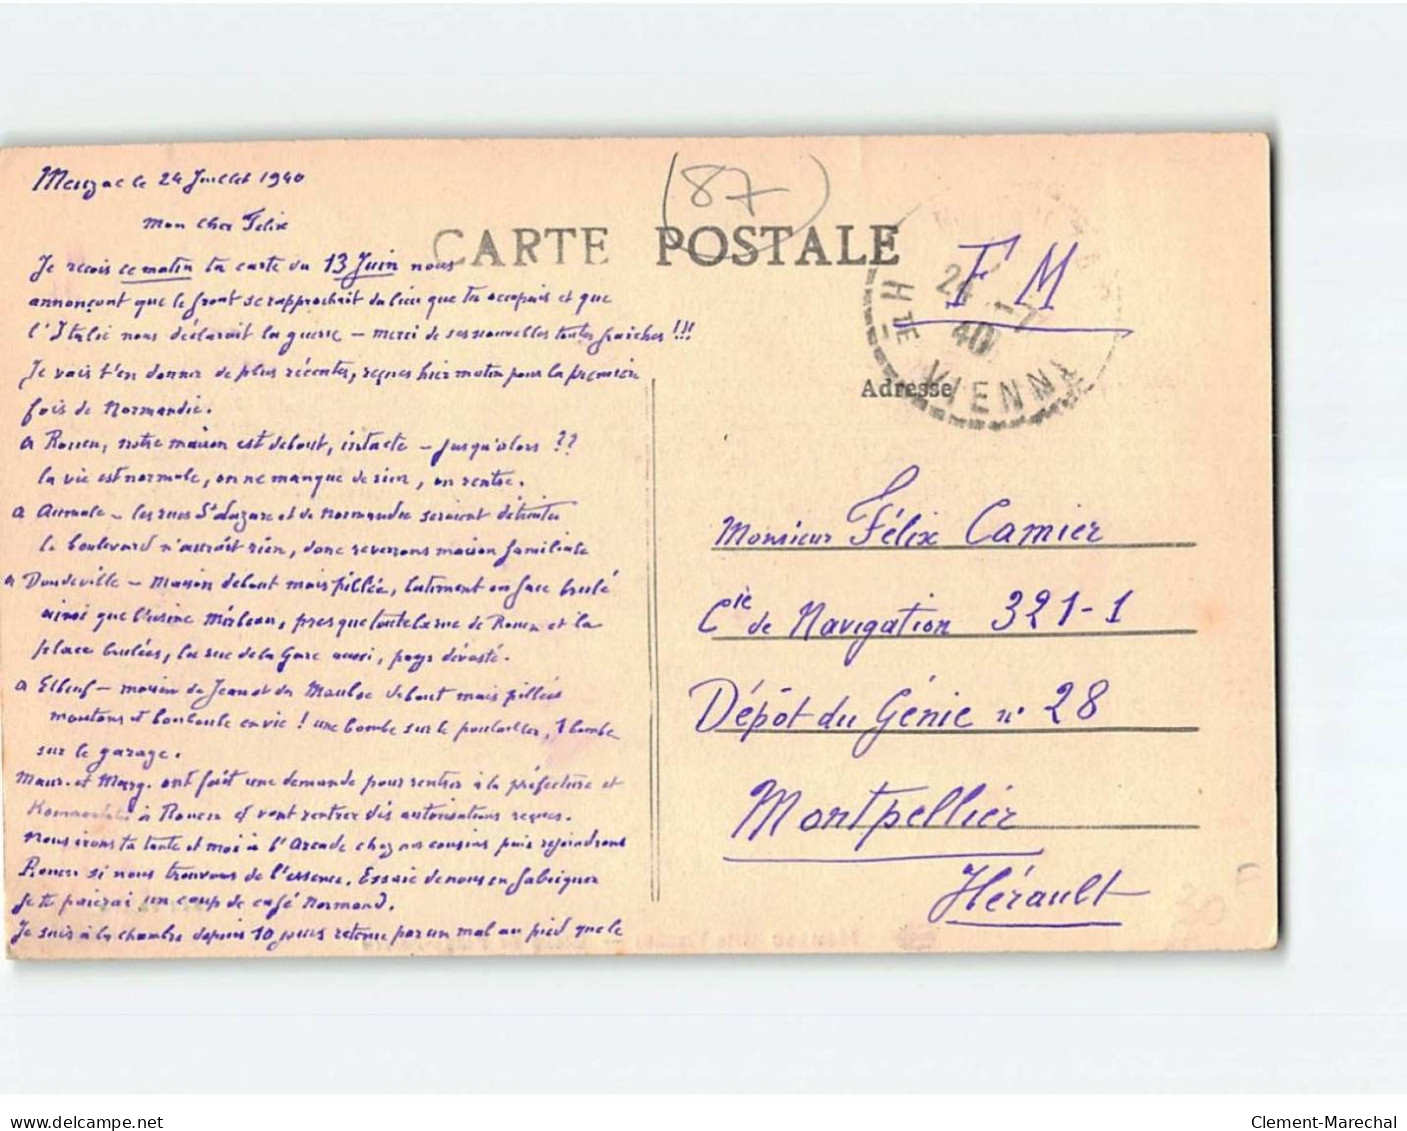 Meuzac le 24 Juillet 1940
Mon cher Félix
Je reçois ce matin ta carte du 13 Juin nous
annonçant que le front se rapprochait du lieu que tu occupais et que
l'Italie nous déclarait la guerre – merci de ses nouvelles toutes fraîches !!!
Je vais t'en donner de plus récentes, reçues hier matin pour la première
fois de Normandie.
a Rouen, notre maison est debout, intacte – jusqu'alors ??
la vie est normale, on ne manque de rien, on rentre.
a Aumale – les rues St Lazare et de Normandie seraient détruites
le boulevard n'aurait rien, donc reverrons maison familiale
a Doudeville – Maison debout mais pillée, batiment en face brulé
ainsi que l'usine, presque toute la rue de Rouen et la
place brulées, la rue de la Gare aussi, pays dévasté.
a Elbeuf – maison de Jean et du debout mais pillées
moutons et en vie ! une bombe sur le poulailler, 1 bombe
sur le garage.
Maur. et Marg. ont fait une demande pour rentrer à la préfecture et
à Rouen et vont rentrer dès autorisations reçues.
Nous irons ta tante et moi à l'Arcade chez nos cousins puis rejoindrons
Rouen si nous trouvons de l'essence. Essaie de nous en fabriquer
je te paierai un coup de café Normand.
Je suis à la chambre depuis 10 jours retenu par un mal au pied que le
(87)
CARTE POSTALE
F M
24 -7
40
HTE VIENNE
Adresse
Monsieur Félix Camier
Cie de Navigation 321-1
Dépôt du Génie n° 28
Montpellier
Hérault
30 F
delcampe.net
Clement-Marechal